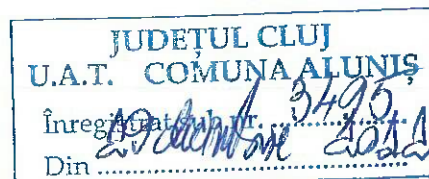 JUDEȚUL CLUJ
U.A.T. COMUNA ALUNIȘ
Înregistrat sub nr. 3495
Din 29 decembrie